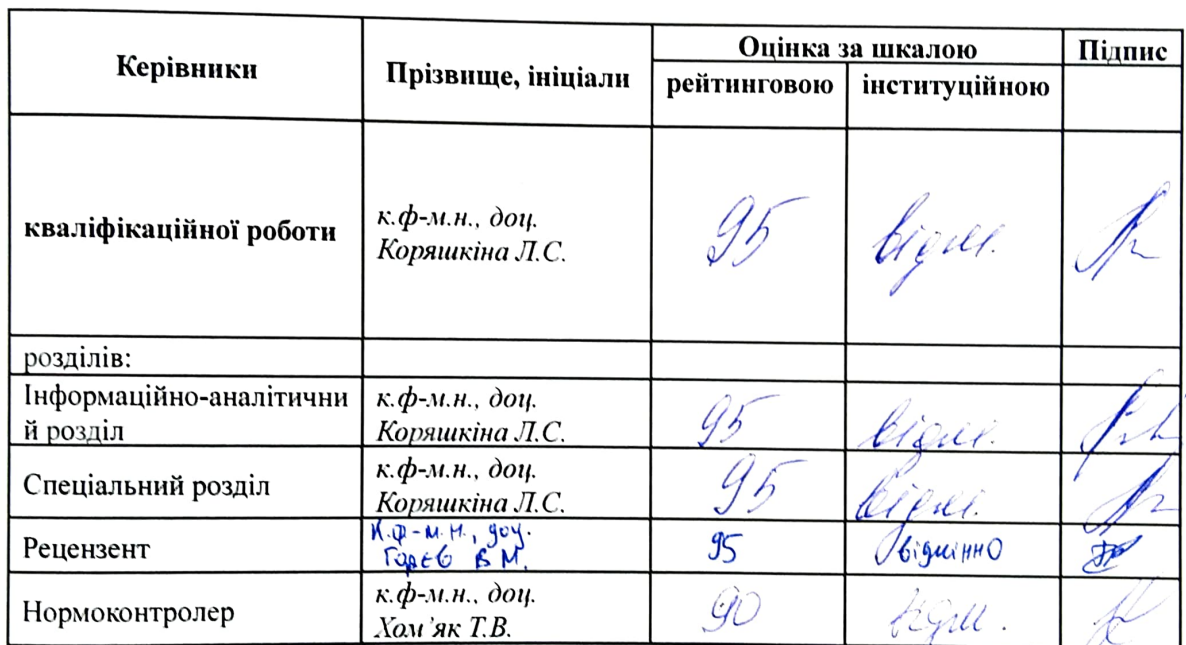 Керівники Прізвище, ініціали Оцінка за шкалою Підпис
рейтинговою інституційною
кваліфікаційної роботи
к.ф-м.н., доц.
Коряшкіна Л.С.
95 відм.
розділів:
Інформаційно-аналітични
й розділ
к.ф-м.н., доц.
Коряшкіна Л.С.
95 відм.
Спеціальний розділ
к.ф-м.н., доц.
Коряшкіна Л.С.
95 відм.
Рецензент
к.ф-м.н., доц.
В М.
95 відмінно
Нормоконтролер
к.ф-м.н., доц.
Хом’як Т.В.
90 відм.